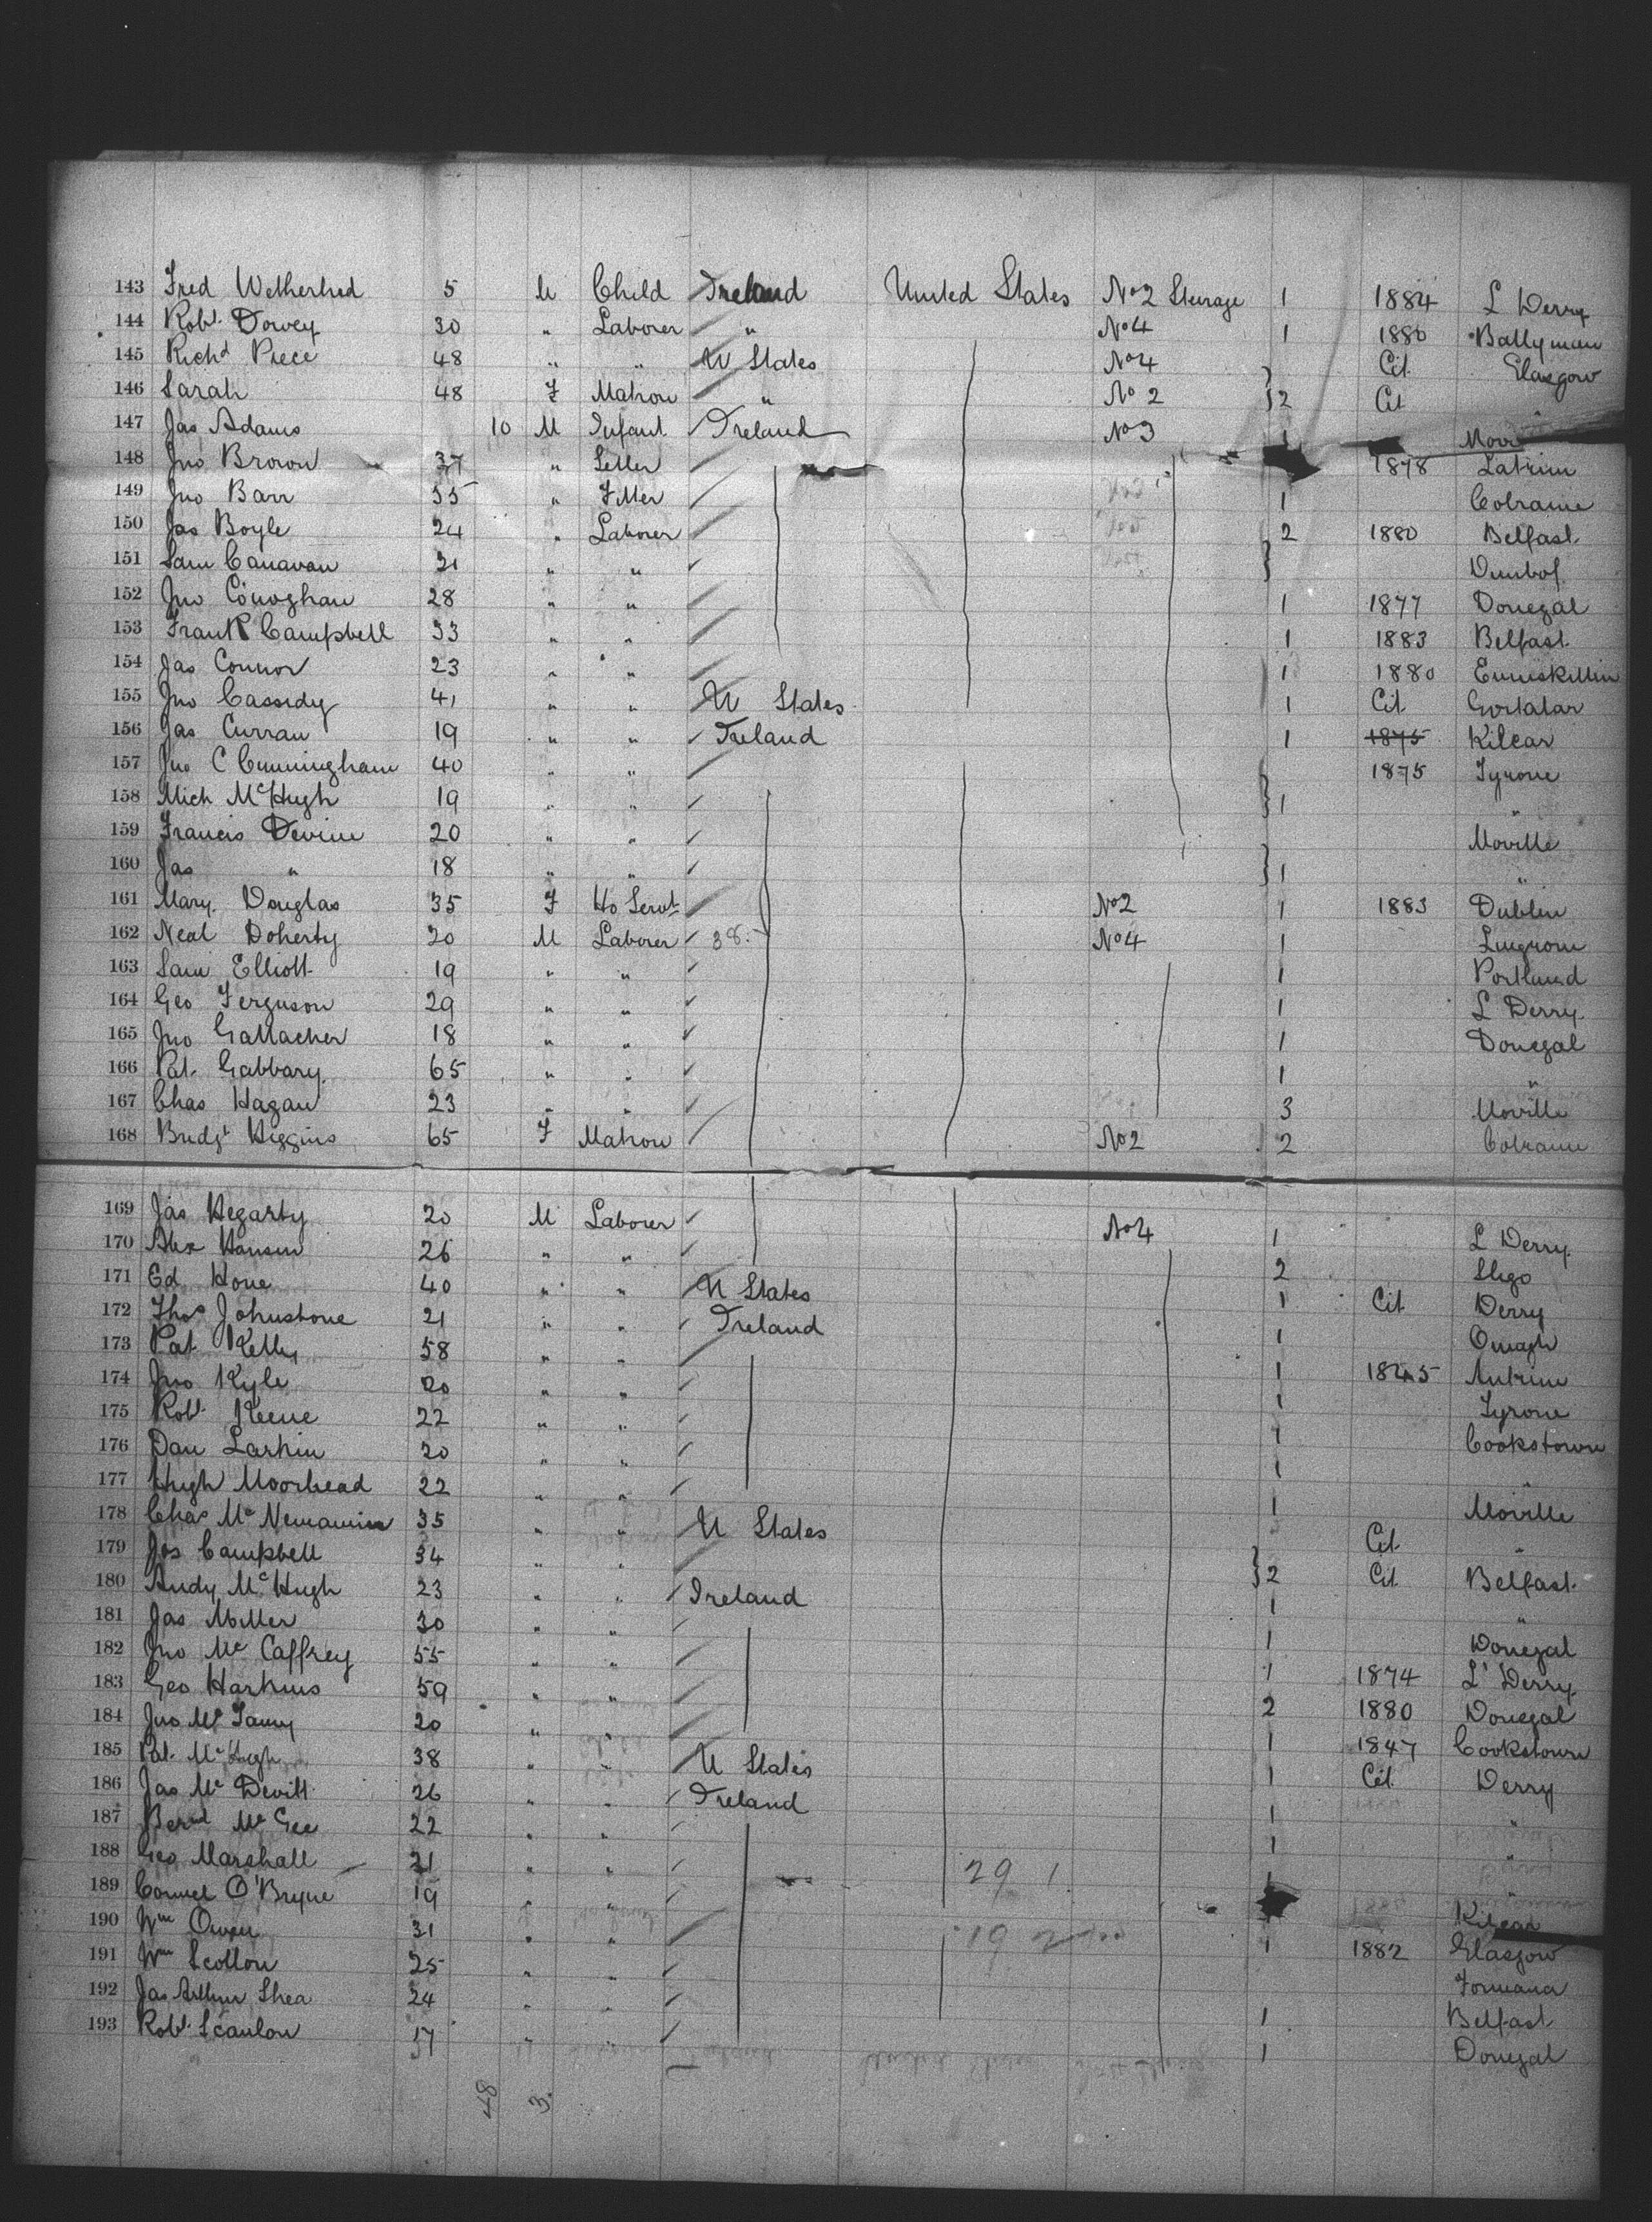 143 Fred Wetherhed 5 M Child Ireland United States No 2 Steerage 1 1884 L Derry
144 Robt. Dowey 30 " Laborer " No 4 1 1880 Ballymun
145 Richd Piece 48 " " U States No 4 Cit Glasgow
146 Sarah 48 F Matron " No 2 2 Cit "
147 Jas Adams 10 M Infant Ireland No 3 1
148 Jno Brown 37 " 1878 Latrim
149 Jno Barr 35 " 1 Colraine
150 Jas Boyle 24 " Laborer 2 1880 Belfast
151 Sam Canavan 21 " "
152 Jno Conoghan 28 " " 1 1877 Donegal
153 Frank Campbell 33 " " 1 1883 Belfast
154 Jas Connor 23 " " 1 1880 Enniskillin
155 Jno Cassidy 41 " " U States 1 Cit Gortatar
156 Jas Curran 19 " " Ireland 1 1875 Kilcar
157 Jno C Cunningham 40 " " 1875 Tyrone
158 Mich McHugh 19 " " 1 "
159 Francis Devine 20 " " Moville
160 Jas " 18 " " 1 "
161 Mary Douglas 35 F Ho Servt No 2 1 1883 Dublin
162 Neal Doherty 20 M Laborer 38. No 4 1
163 Sam Elliott 19 " " 1
164 Geo Ferguson 29 " " 1 L Derry
165 Jno Gallacher 18 " " 1 Donegal
166 Pat. Gabbary 65 " " 1 "
167 Chas Hagan 23 " " 3 Moville
168 Bridgt Higgins 65 F Matron No 2 2 Colraine
169 Jas Hegarty 20 M Laborer No 4 1 L Derry
170 Alex Hanson 26 " " 2 Sligo
171 Ed Hone 40 " " U States 1 Cit Derry
172 Thos Johnstone 21 " " Ireland 1 Omagh
173 Pat Kelly 58 " " 1 1845 Antrim
174 Jno Kyle 20 " " 1 Tyrone
175 Robt. Keene 22 " " 1 Cookstown
176 Dan Larkin 20 " " 1 "
177 Hugh Moorhead 22 " " 1 Moville
178 Chas McNemamin 35 " " U States Cit "
179 Jas Campbell 34 " " 2 Cit Belfast
180 Andy McHugh 23 " " Ireland 1 "
181 Jas Miller 30 " " 1 Donegal
182 Jno McCaffrey 55 " " 1 1874 L Derry
183 Geo Harkins 59 " " 2 1880 Donegal
184 Jno 20 " " 1 1847 Cookstown
185 Pat. McHugh 38 " " U States 1 Cit Derry
186 Jas McDevitt 26 " " Ireland 1 "
187 Bernd McGee 22 " " 1 "
188 Geo Marshall 21 " " 29 1 1 "
189 Connel O'Bryne 19 " " Kilcar
190 Wm Owen 31 " " 19 2 1 1882 Glasgow
191 Wm Scollon 25 " "
192 Jas Arthur Shea 24 " " 1 Belfast
193 Robt. Scanlon 1 Donegal
48 3